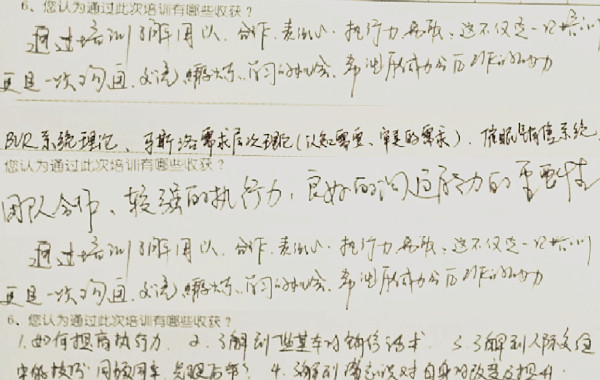 6、您认为通过此次培训有哪些收获？
通过培训了解用以、合作、责任心、执行力 这不仅是一次培训
更是一次沟通、交流、锻炼、学习的机会、希望 今后工作的动力
BVR系统理论、马斯洛需求层次理论(认知需要、审美的需求)、催眠销售系统
您认为通过此次培训有哪些收获？
团队合作、较强的执行力、良好的沟通能力的重要性
通过培训了解用以、合作、责任心、执行力 这不仅是一次培训
更是一次沟通、交流、锻炼、学习的机会、希望 今后工作的动力
6、您认为通过此次培训有哪些收获？
1.如何提高执行力 2.了解到一些基本的销售话术 3.了解到人际交往
中的技巧 4.了解到 对自身的改变与提升